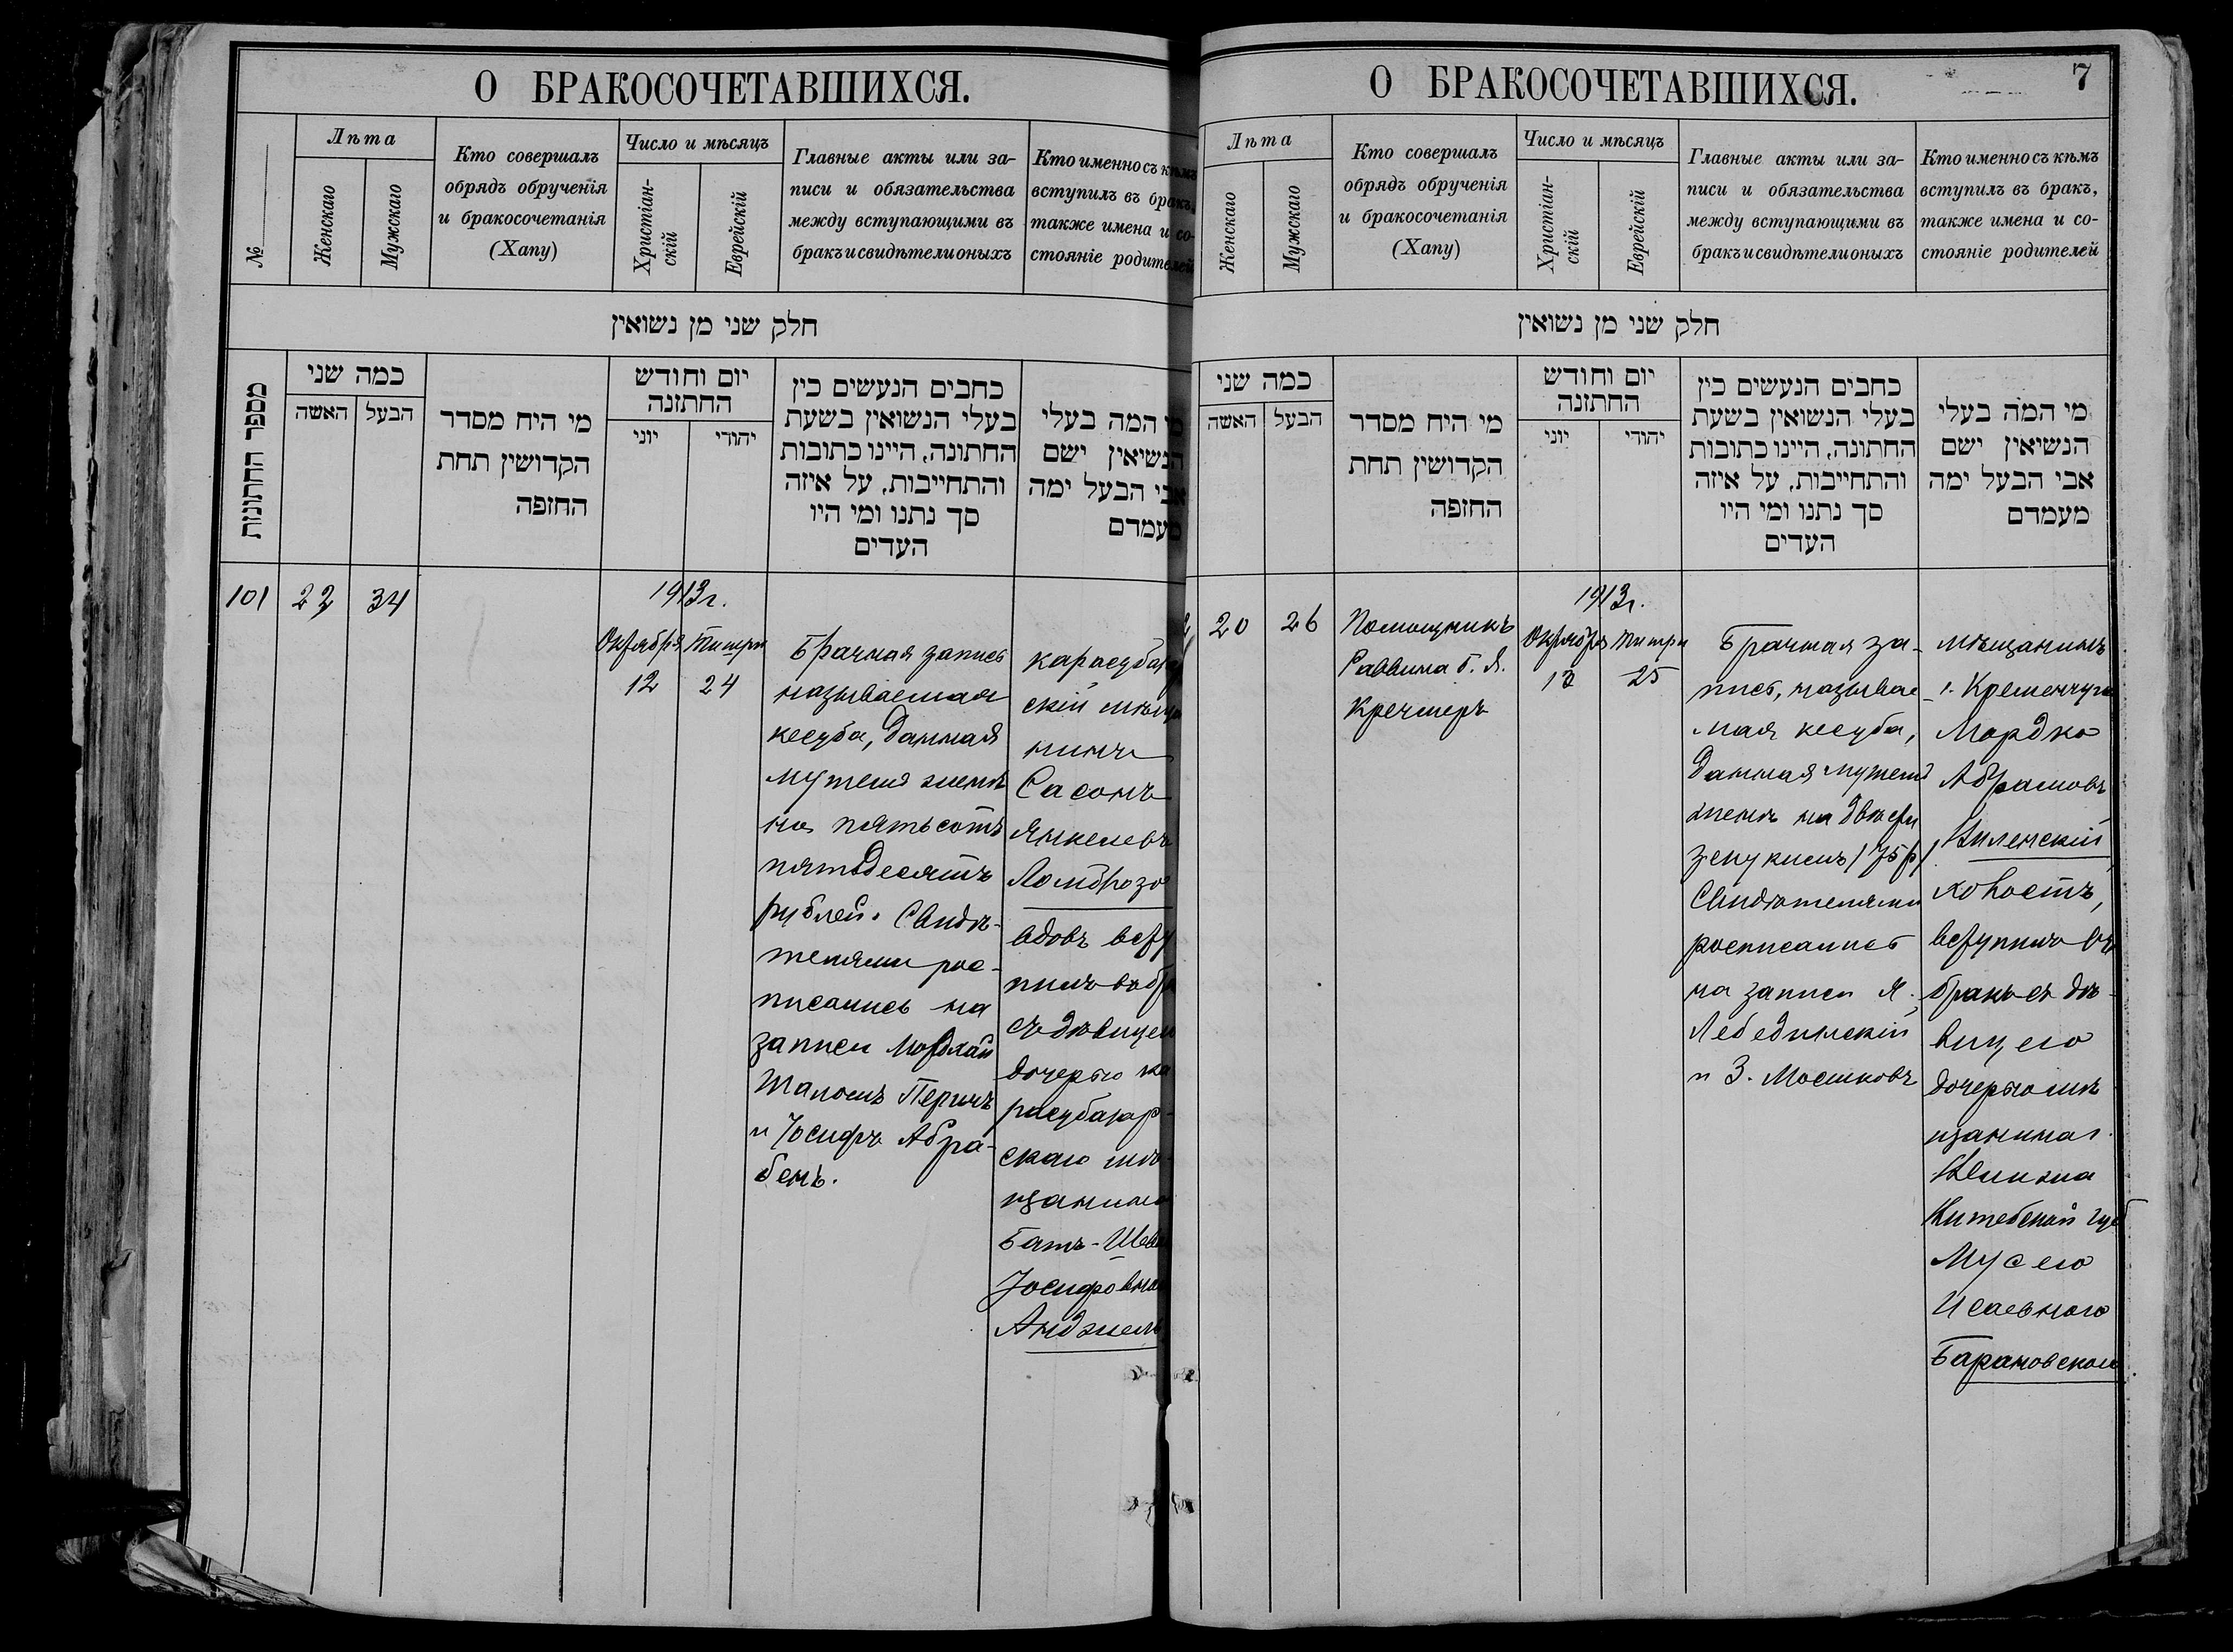 О БРАКОСОЧЕТАВШИХСЯ.
№
Лѣта
Женскаго
Мужскаго
Кто совершалъ
обрядъ обрученія
и бракосочетанія
(Хапу)
Число и мѣсяцъ
Христіан-
скій
Еврейскій
Главные акты или за-
писи и обязательства
между вступающими въ
бракъ и свидѣтели оныхъ
Кто именно съ кѣмъ
вступилъ въ бракъ,
также имена и со-
стояніе родителей
חלק שני מן נשואין
מספר החתונות
כמה שני
האשה
הבעל
מי היח מסדר
הקדושין תחת
החזפה
יום וחודש
החתזנה
יוני
יהודי
כחבים הנעשים כין
בעלי הנשואין בשעת
החתונה, היינו כתובות
והתחייבות, על איזה
סך נתנו ומי היו
העדים
מי המה בעלי
הנשיאין ישם
אבי הבעל ימה
מעמדם
101
22
34
1913г.
Октября
12
Тишри
24
Брачная запись
называемая
кесуба, данная
мужемъ женѣ
на пятьсотъ
пятьдесятъ
рублей. Свидѣ-
телями рос-
писались на
записи Мордхай
Шаломъ Перичъ
и Іосифъ Абра-
бенъ.
карасубазар
скій мѣща
нинъ
Сасонъ
Янкелевъ
Ломброзо
вдовъ всту
пилъ въ бр
съ дѣвицею
дочерью ка
расубазар-
скаго мѣ-
щанина
Батъ-Шева
Іосифовною
Анджель
О БРАКОСОЧЕТАВШИХСЯ.
7
Лѣта
Женскаго
Мужскаго
Кто совершалъ
обрядъ обрученія
и бракосочетанія
(Хапу)
Число и мѣсяцъ
Христіан-
скій
Еврейскій
Главные акты или за-
писи и обязательства
между вступающими въ
бракъ и свидѣтели оныхъ
Кто именно съ кѣмъ
вступилъ въ бракъ,
также имена и со-
стояніе родителей
חלק שני מן נשואין
כמה שני
האשה
הבעל
מי היח מסדר
הקדושין תחת
החזפה
יום וחודש
החתזנה
יוני
יהודי
כחבים הנעשים כין
בעלי הנשואין בשעת
החתונה, היינו כתובות
והתחייבות, על איזה
סך נתנו ומי היו
העדים
מי המה בעלי
הנשיאין ישם
אבי הבעל ימה
מעמדם
20
26
Помощникъ
Раввина Б. Я.
Кречмеръ
1913г.
Октября
13
Тишри
25
Брачная за-
пись, называе-
мая кесуба,
данная мужемъ
женѣ на двѣсти
зекукимъ /75 р/
Свидѣтелями
росписались
на записи Я.
Лебединскій
и З. Мошковъ
мѣщанинъ
г. Кременчуга
Мордко
Абрамовъ
Виленскій
холостъ,
вступилъ въ
бракъ съ дѣ-
вицею
дочерью мѣ-
щанина г.
Велижа
Витебской губ
Мусею
Исаевною
Барановскою.